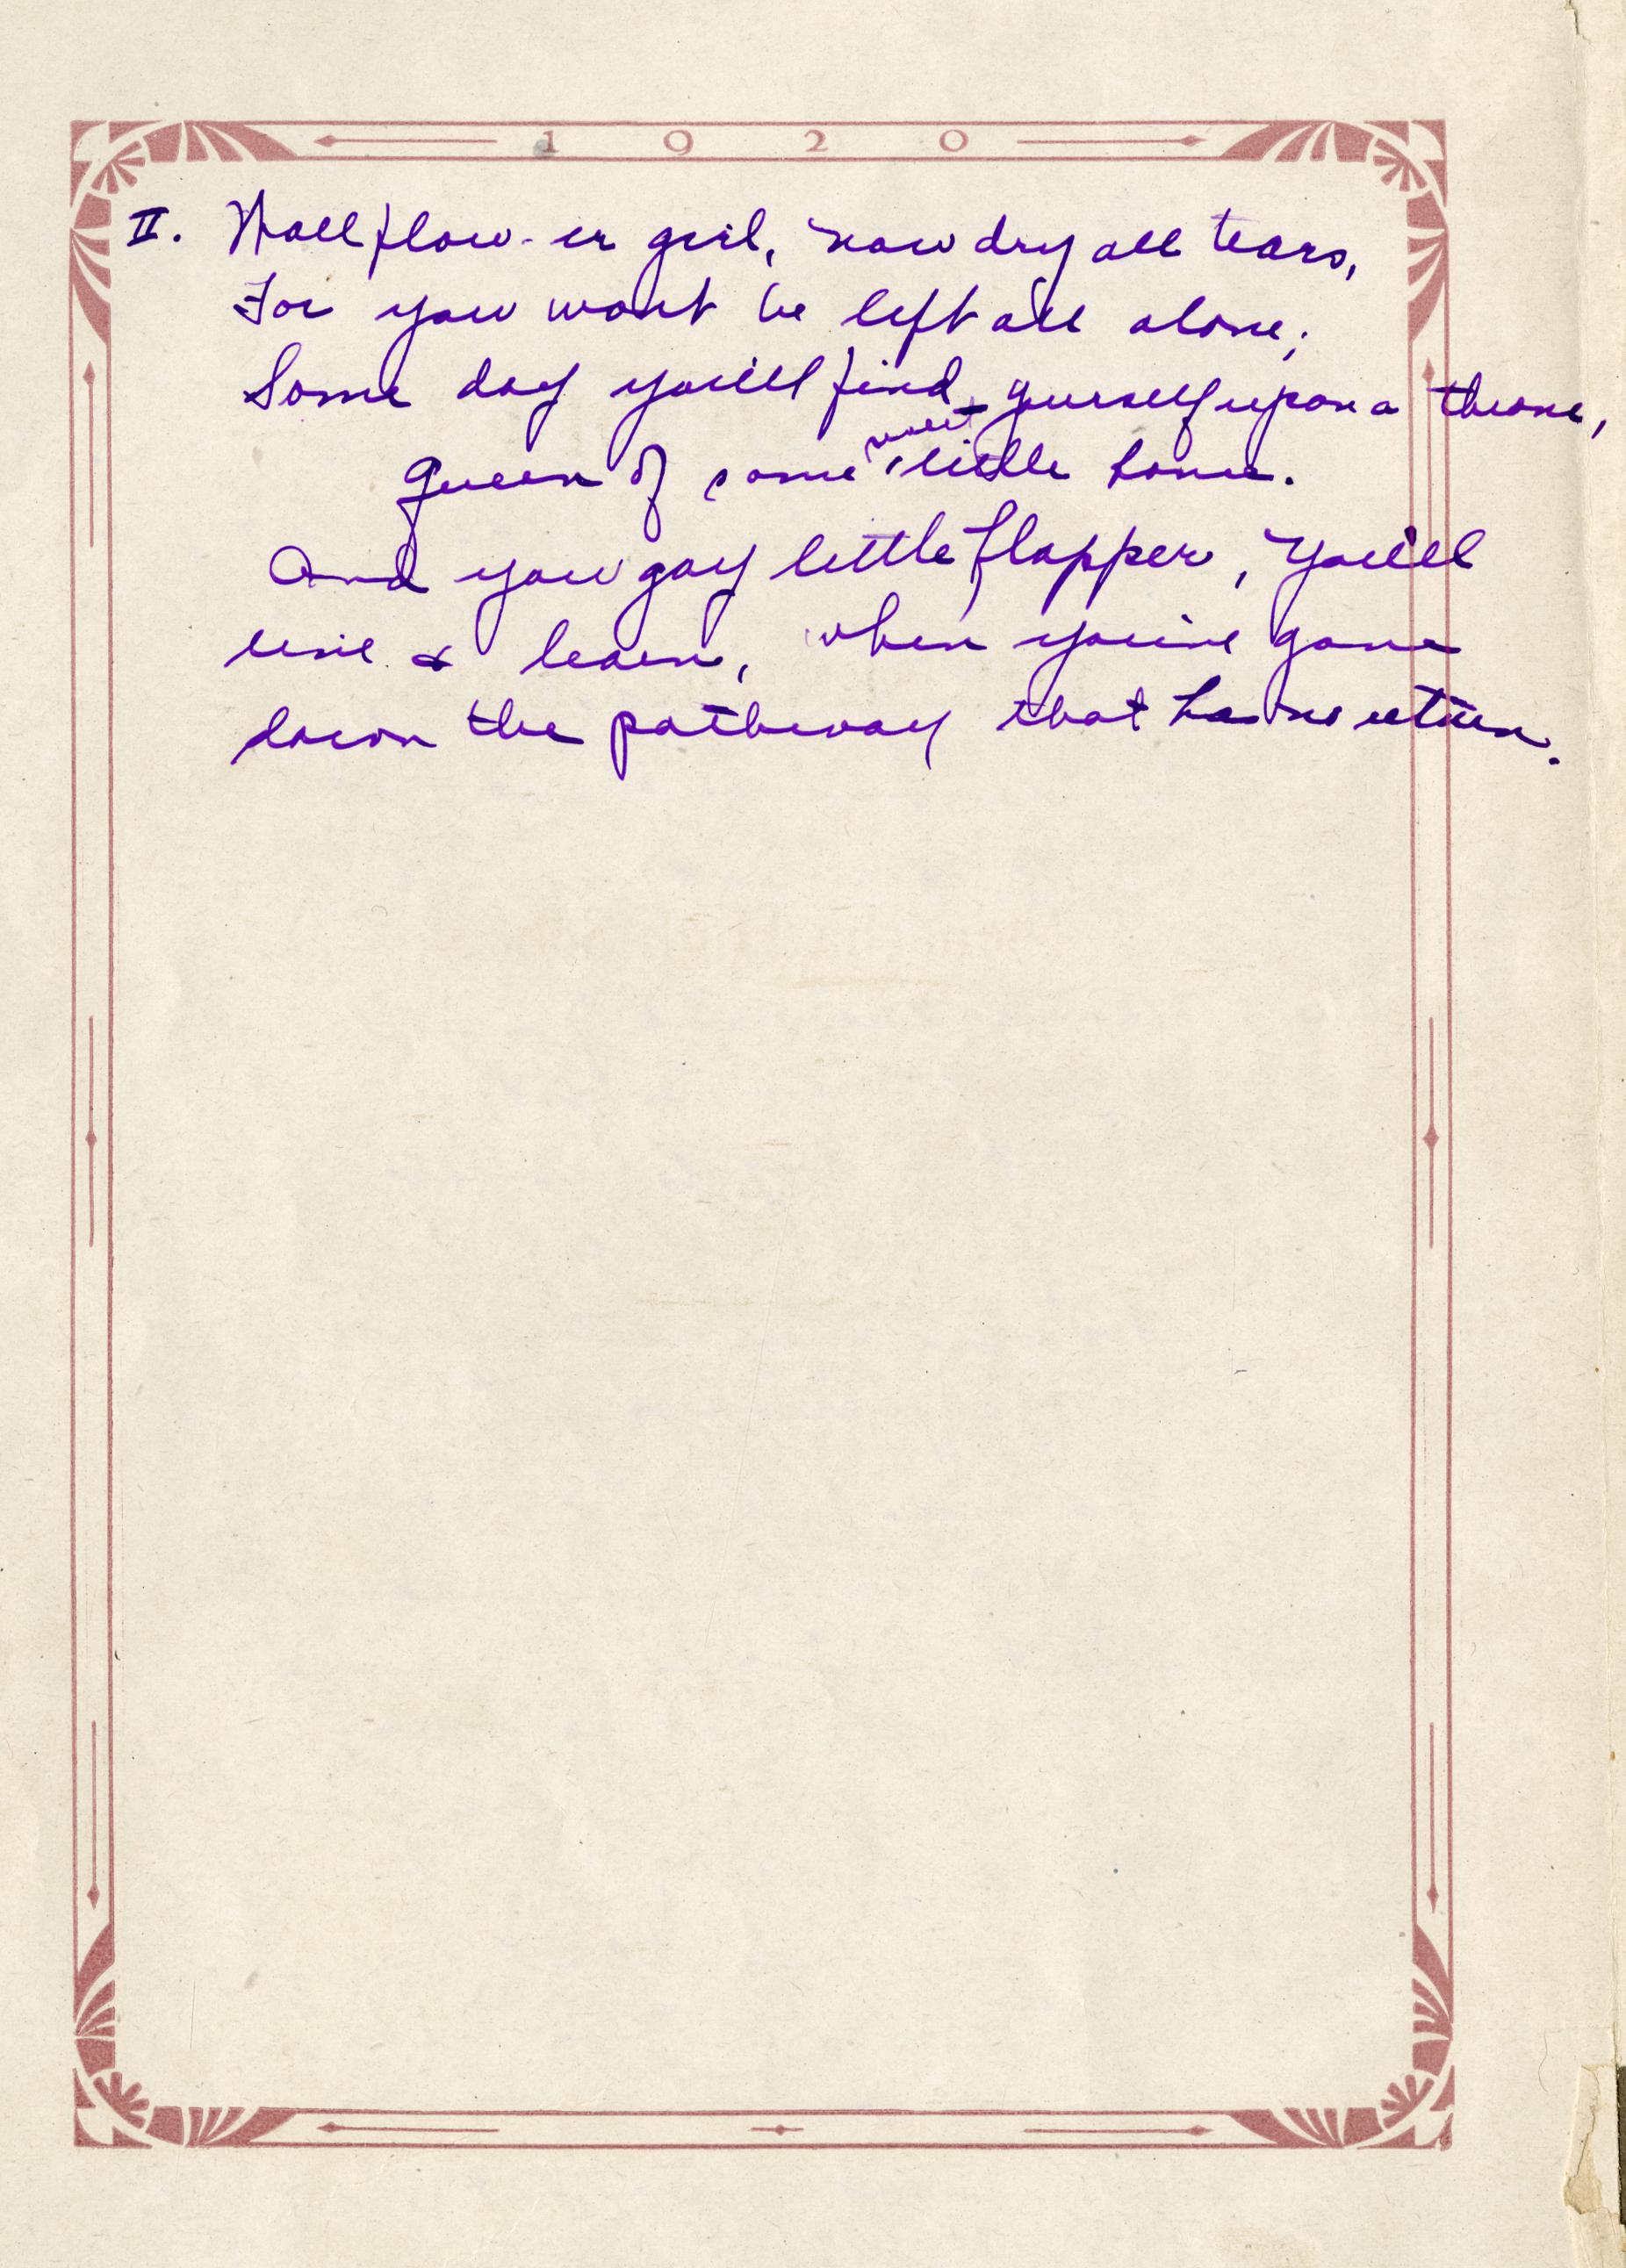 1920
II. Wallflow-er girl, now dry all tears,
For you wont be left all alone;
Some day you'll find yourself upon a throne,
queen of some sweet little home.
And you gay little flapper, you'll
live & learn, when you've gone
down the pathway that has no return.